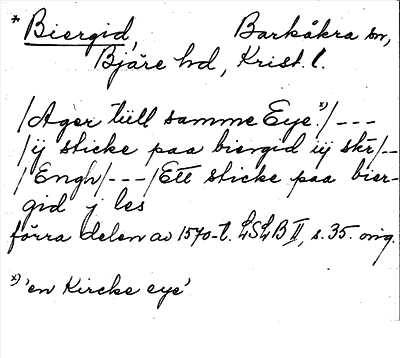 * Biergid, Barkåkra sn,
Bjäre hd, Krist. l.
/Ager tiill samme Eye.*)/---
/ij sticke paa biergid iij skr/--
/Engh/---/Ett sticke paa bier-
gid j les
förra delen av 1570-t. LSLB II, s. 35. orig.
*) 'en Kircke eye'